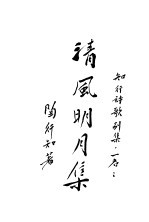 知行詩歌別集·一卷：
清風明月集
陶行知著